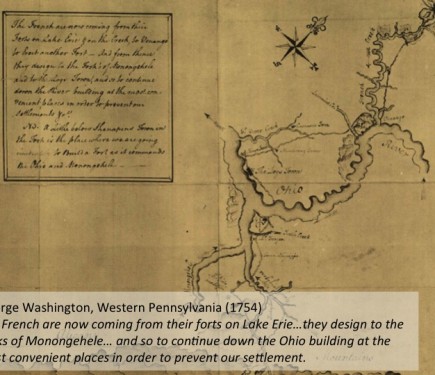 The French are now coming from their
Forts on Lake Erie & on the Creek, to Venango
to Erect another Fort - And from thence
they design to the Fork's of Monongehele
and to the Logs Town, and so to continue
down the River building at the most con-
venient places in order to prevent our
Settlements &c.
NB. A little below Shanapins Town in
the Fork is the place where we are going
to Build a Fort as it commands
the Ohio and Monongehele
Ohio
River
The Logs Town
rge Washington, Western Pennsylvania (1754)
French are now coming from their forts on Lake Erie…they design to the
ks of Monongehele… and so to continue down the Ohio building at the
st convenient places in order to prevent our settlement.